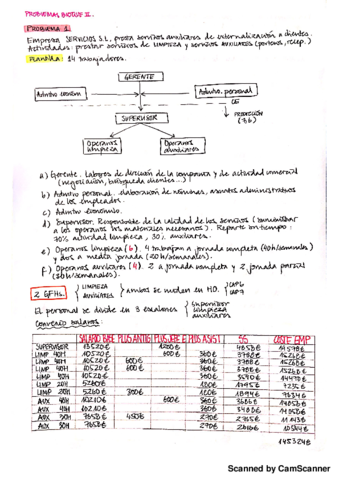 PROBLEMAS BLOQUE II.
PROBLEMA 1
Empresa SERVICIOS S.L. presta servicios auxiliares de externalización a clientes.
Actividades: prestar servicios de LIMPIEZA y servicios AUXILIARES (porteros, recep.)
Plantilla: 14 trabajadores.
GERENTE
Admtvo económ
Admtvo. personal
CE
SUPERVISOR
PRODUCCIÓN
Operarios limpieza
Operarios auxiliares
a) Gerente. Labores de dirección de la compañía y de actividad comercial
(negociación, búsqueda clientes...)
b) Admtvo personal. elaboración de nóminas, asuntos administrativos
de los empleados.
c) Admtvo económico.
d) Supervisor. Responsable de la calidad de los servicios (suministrar
a los operarios los materiales necesarios). Reparte su tiempo:
70% actividad limpieza, 30% auxiliares.
e) Operarios limpieza (6). 4 trabajan a jornada completa (40h/semanales)
y dos a media jornada (20h/semanales).
f) Operarios auxiliares (4). 2 a jornada completa y 2 jornada parcial
(30h/semanales).
2 GFHs.
LIMPIEZA
AUXILIARES
Ambos se miden en H.O.
El personal se divide en 3 escalones
Supervisor
limpieza
auxiliares
Convenio salarios:
SALARIO BASE PLUS ANTIG PLUS JEFE E PLUS ASIST SS COSTE EMP
SUPERVISOR 13520€ 1200€
LIMP 40H 10520€ 360€
LIMP 40H 10520€ 600€ 360€
LIMP 40H 10520€ 600€ 360€
LIMP 40H 10520€ 360€
LIMP 20H 5260€ 180€
LIMP 20H 5260€ 300€ 180€
AUX 40H 10210€ 600€ 360€
AUX 40H 10210€ 360€
AUX 30H 7658€ 450€ 270€
AUX 30H 7658€ 270€
145324€
Scanned by CamScanner